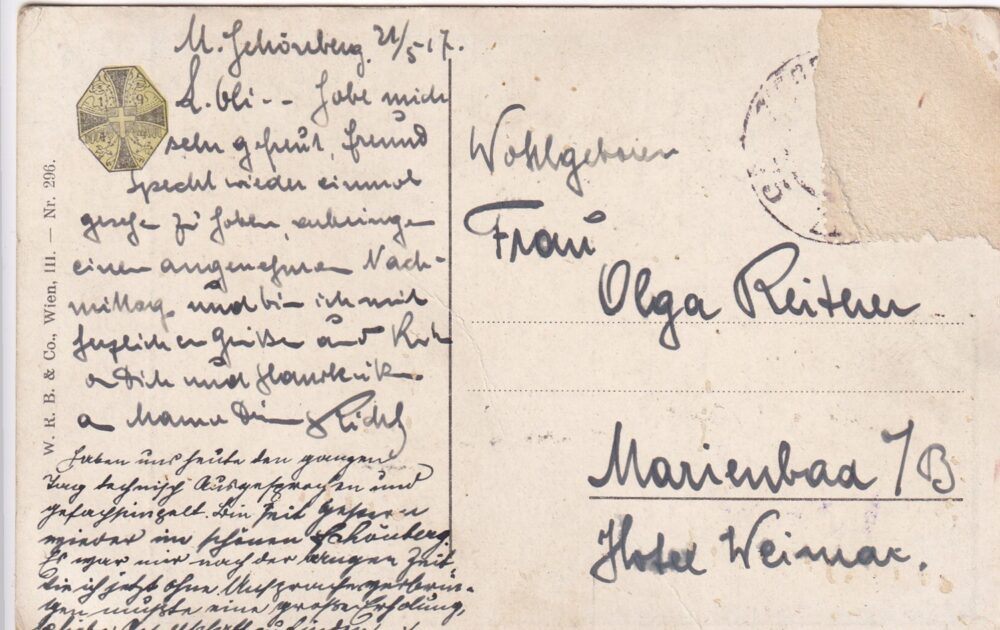 M. Schönberg, 21/5 17.
L. Oli -- Habe mich
sehr gefreut, Freund
Specht wieder einmal
gesehen zu haben, verbringen
einen angenehmen Nach-
mittag und bin ich mit
herzlichen Grüßen und
Dich und
Mama Dein Richl
Haben uns heute den ganzen
Tag technisch Ausgesprochen und
gefachsimpelt. Bin seit Gestern
wieder im schönen Schönberg.
Es war mir nach der langen Zeit
die ich jetzt ohne Ansprache verbrin-
gen mußte eine große Erholung,
W. R. B. & Co., Wien, III. — Nr. 296.
19
Wohlgeboren
Frau
Olga Reither
Marienbad i/B
Hotel Weimar.